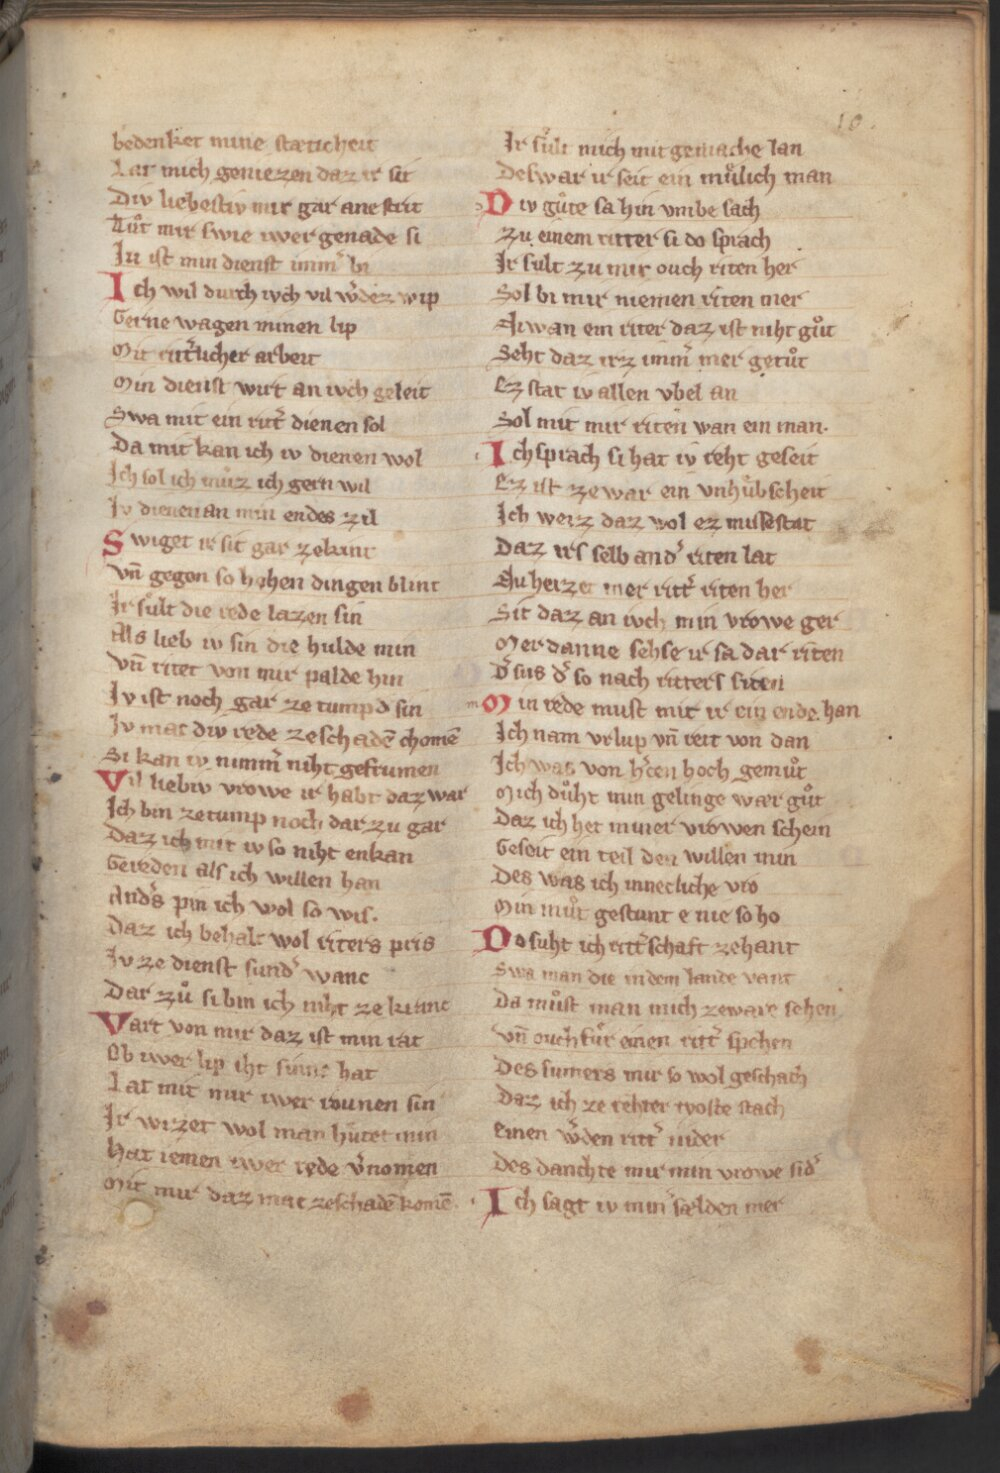 10.
bedenket mine stæticheit
Lat mich geniezen daz ir sit
Div liebestiv mir gar ane strit
Tůt mir swie iwer genade si
Iu ist min dienst imm̄ bi
Ich wil durch ivch vil w̄dez wip
Gerne wagen minen lip
Mit ritt̄licher arbeit
Min dienst wirt an ivch geleit
Swa mit ein ritt̄ dienen sol
Da mit kan ich iv dienen wol
Ich sol ich můz ich gern wil
Iv dienen an min endes zil
Swiget ir sit gar ze kint
vn̄ gegen so hohen dingen blint
Ir sůlt die rede lazen sin
Als lieb iv sin die hulde min
vn̄ ritet von mir palde hin
Iv ist noch gar ze tump d̄ sin
Iv mac div rede ze schadē chomē
Si kan iv nimm̄ niht gefrumen
Vil liebiv vrowe ir habt daz war
Ich bin ze tump noch dar zu gar
Daz ich mit iv so niht enkan
Gereden als ich willen han
And̄s pin ich wol so wis.
Daz ich behalt wol riters pris
Iv ze dienst sund̄ wanc
Dar zů si bin ich niht ze kranc
Vart von mir daz ist min rat
Ob iwer lip iht sinne hat
Lat mit mir iwer rounen sin
Ir wizet wol man hůtet min
Hat iemen iwer rede v̄nomen
Mit mir daz mac ze schadē komē.
Ir sult mich mit gemache lan
Deswar ir seit ein můlich man
Div gůte sa hin vmbe sach
zu einem ritter si do sprach
Ir sult zu mir ouch riten her
Sol bi mir niemen riten mer
Niwan ein riter daz ist niht gůt
Seht daz irz imm̄ mer getůt
Ez stat iv allen vbel an
Sol mit mir riten wan ein man.
Ich sprach si hat iv reht geseit
Ez ist ze war ein vnhůbscheit
Ich weiz daz wol ez missestat
Daz irs selb and̄ riten lat
Nu herzet mer ritt̄ riten her
Sit daz an ivch min vrowe ger
Mer danne sehse ir sa dar riten
d̄ sus d̄ so nach ritters siten
Min rede must mit ir ein ende. han
Ich nam vrlup vn̄ reit von dan
Ich was von h̄cen hoch gemůt
Mich důht min gelinge wær gůt
Daz ich het miner vrowen schein
Geseit ein teil den willen min
Des was ich innecliche vro
Min můt gestunt e nie so ho
Do suht ich ritt̄schaft zehant
Swa man die in dem lande vant
Da můst man mich zeware sehen
vn̄ ouch fůr einen ritt̄ spehen
Des sumers mir so wol geschach
Daz ich ze rehter tyoste stach
Einen w̄den ritt̄ nider
Des danchte mir min vrowe sid̄
Ich sagt iv min̄ sælden mer